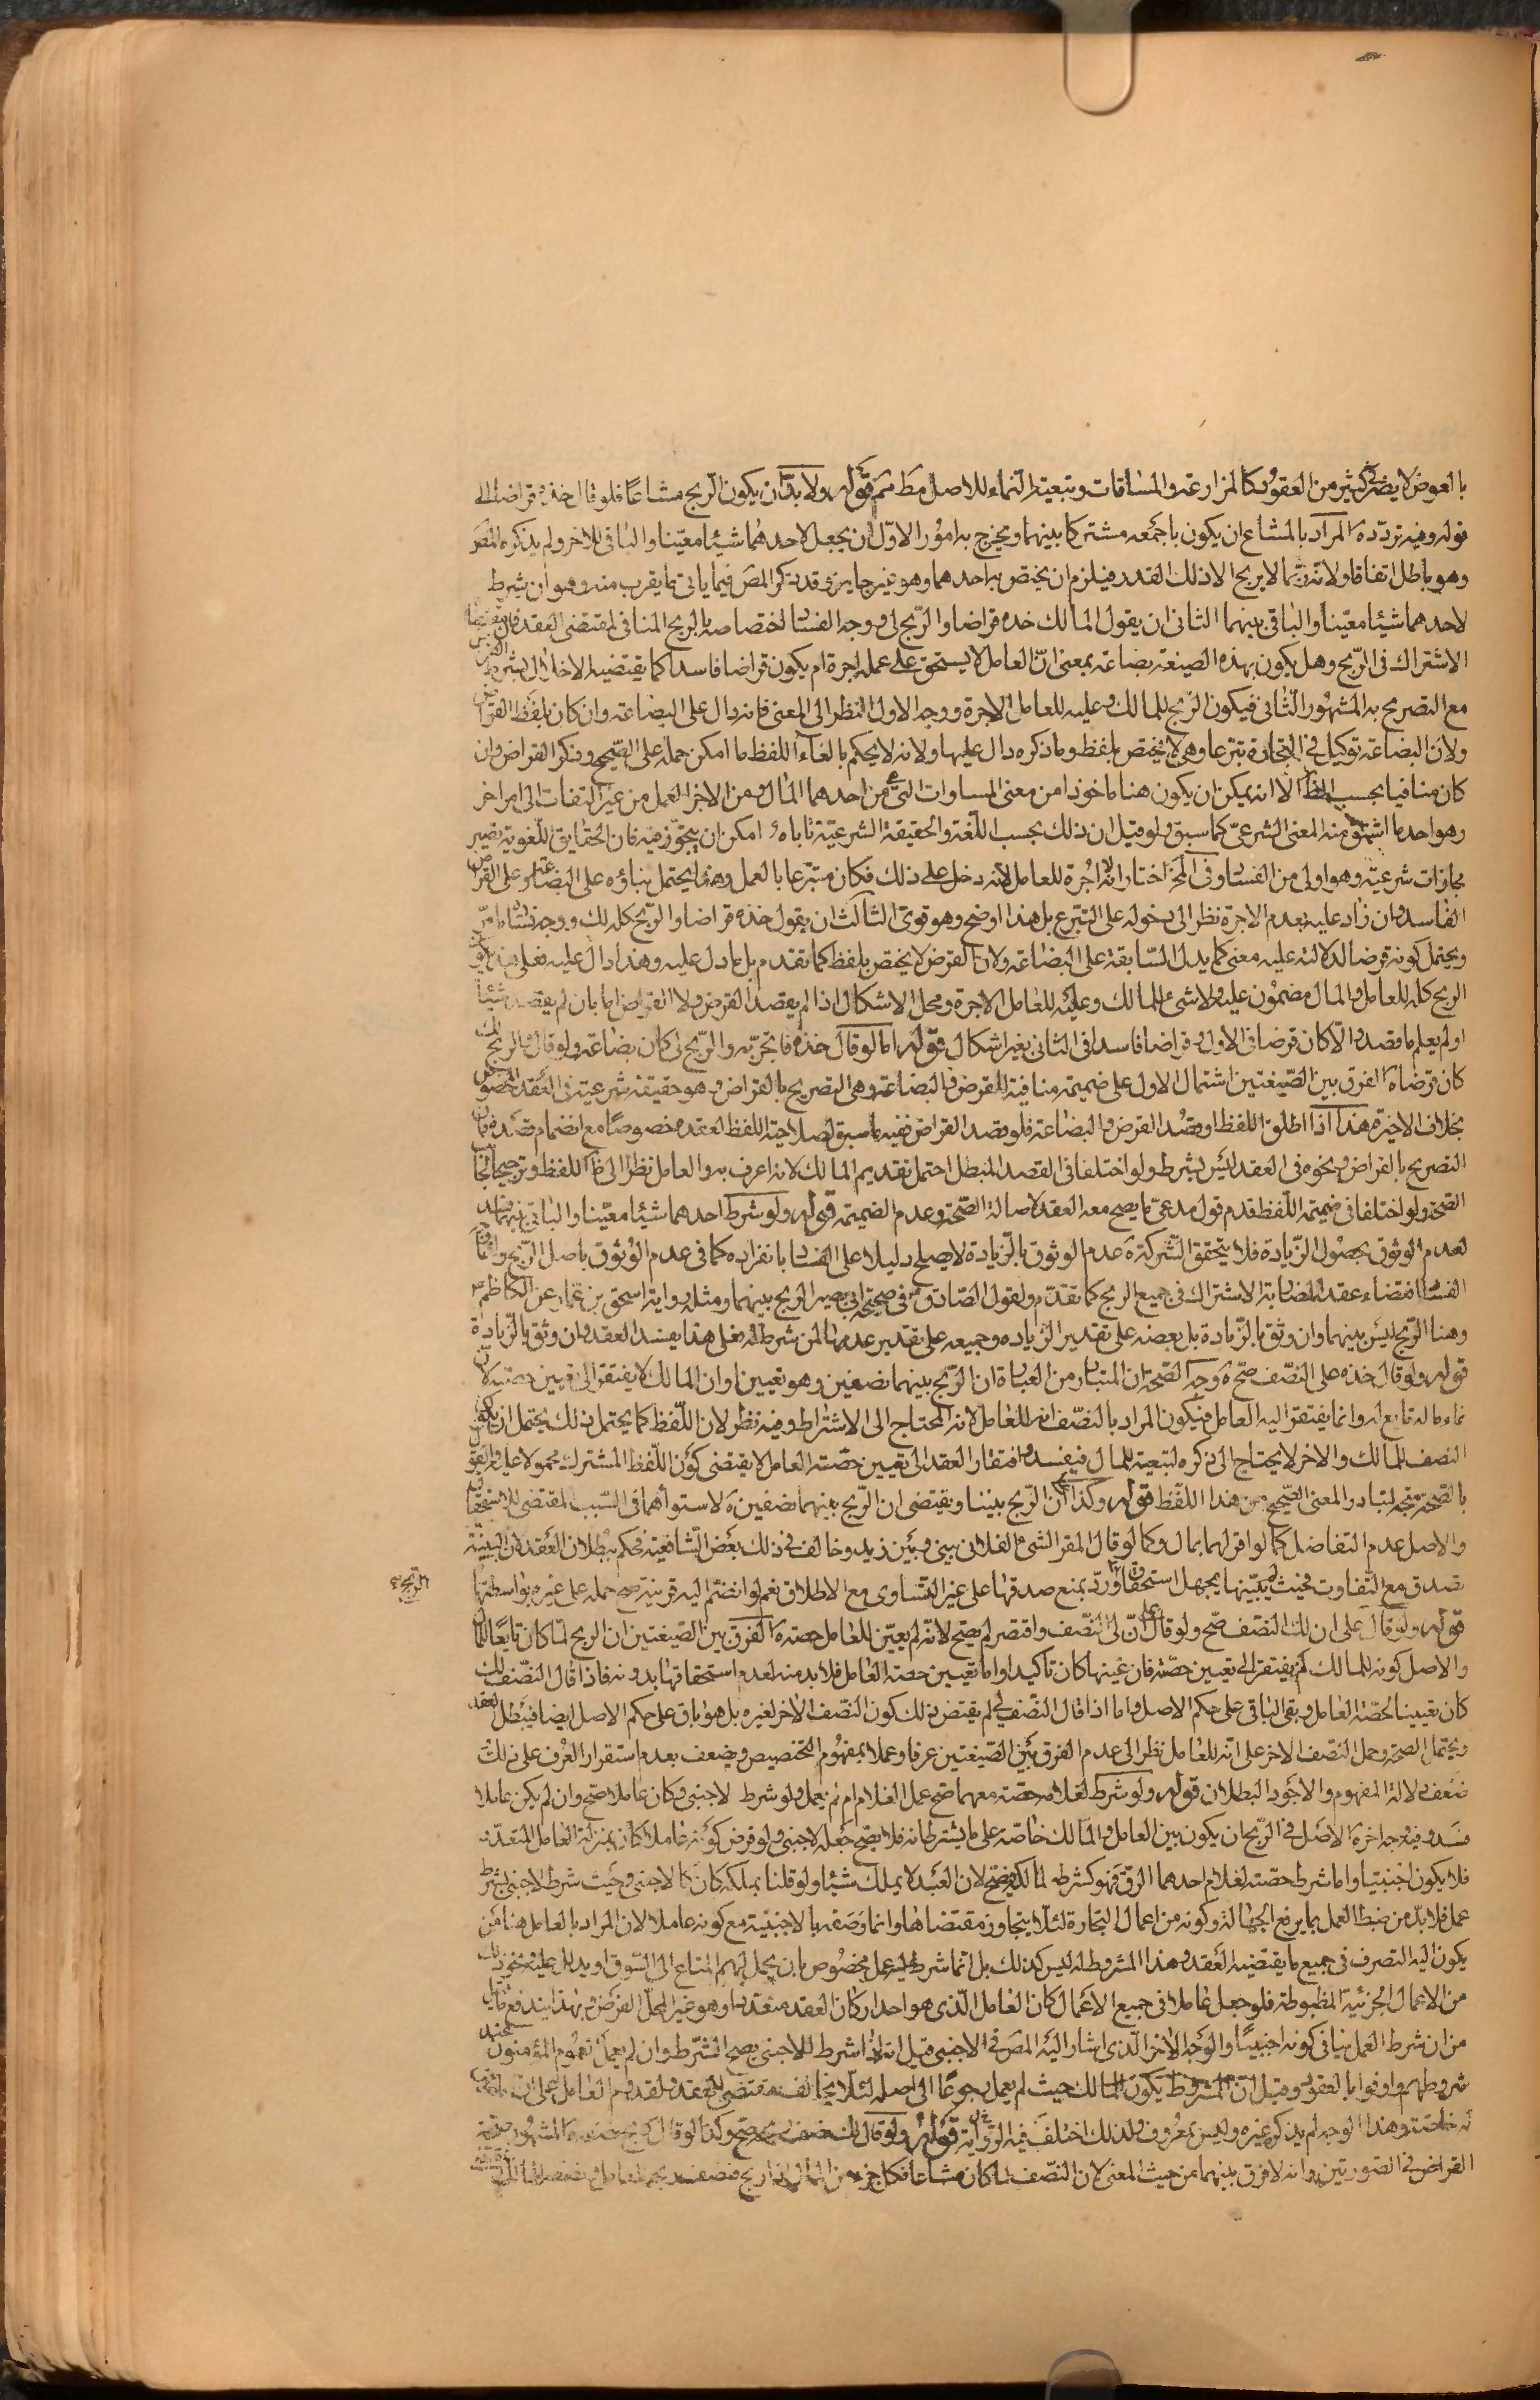 بالعوض لا يضر كثير من العقود كالمزارعة والمساقات وتبعية النماء للاصل مط ثم قوله ولا بد ان يكون الربح مشاعا فلو قال خذه قراضا الى
قوله وفيه تردد ه المراد بالمشاع ان يكون باجمعه مشتركا بينهما ويخرج به امور الاول ان يجعل لاحدهما شيئا معينا والباقي للاخر ولم يذكره المص
وهو باطل اتفاقا ولانه ربما لا يربح الا ذلك القدر فيلزم ان يختص به احدهما وهو غير جايز وقد ذكر المص فيما ياتي ما يقرب منه وهو ان شرط
لاحدهما شيئا معينا والباقي بينهما الثاني ان يقول المالك خذه قراضا والربح لي ووجه الفساد اختصاصه بالربح المنافي لمقتضى العقد فان مقتضاها
الاشتراك في الربح وهل يكون بهذه الصيغة بضاعة بمعنى ان العامل لا يستحق على عمله اجرة ام يكون قراضا فاسدا كما يقتضيه الاخلال بشرط القراض
مع التصريح به المشهور الثاني فيكون الربح للمالك وعليه للعامل الاجرة ووجه الاول النظر الى المعنى فانه دال على البضاعة وان كان بلفظ القراض
ولان البضاعة توكيل في التجارة تبرعا وهي لا تختص بلفظ وما ذكره دال عليها ولانه لا يحكم بالغاء اللفظ ما امكن حمله على الصحيح وذكر القراض وان
كان منافيا بحسب الظ الا انه يمكن ان يكون هنا ماخوذا من معنى المساوات التي من احدهما المال ومن الاخر العمل من غير التفات الى امر اخر
وهو احد ما اشتق منه المعنى الشرعي كما سبق ولو قيل ان ذلك بحسب اللغة والحقيقة الشرعية تاباه امكن ان يتجوز فيه فان الحقايق اللغوية تصير
مجازات شرعية وهو اولى من الفساد وفي المخ اختار انه لا اجرة للعامل لانه دخل على ذلك فكان متبرعا بالعمل وهذا يحتمل بناؤه على البضاعة وعلى القراض
الفاسد وان زاد عليه بعدم الاجرة نظرا الى دخوله على التبرع بل هذا اوضح وهو قوي الثالث ان يقول خذه قراضا والربح كله لك ووجه فساده ما مر
ويحتمل كونه قرضا لدلالته عليه معنى كما يدل السابقة على البضاعة ولان القرض لا يختص بلفظ كما تقدم بل ما دل عليه وهذا دال عليه فعلى هذا يكون
الربح كله للعامل والمال مضمون عليه ولا شيء للمالك وعليه للعامل الاجرة ومحل الاشكال اذا لم يقصد القرض ولا القراض اما بان لم يقصد شيئا
او لم يعلم ما قصد والا كان قرضا في الاول وقراضا فاسدا في الثاني بغير اشكال قوله اما لو قال خذه فاتجر به والربح لي كان بضاعة ولو قال والربح لك
كان قرضا ه الفرق بين الصيغتين اشتمال الاول على ضميمة منافية للقرض والبضاعة وهي التصريح بالقراض وهو حقيقة شرعية في العقد المخصوص
بخلاف الاخيرة هذا اذا اطلق اللفظ او قصد القرض والبضاعة فلو قصد القراض ففيه ما سبق لصلاحية اللفظ لعقده خصوصا مع انضمام قصده فان
التصريح بالقراض ونحوه في العقد ليس بشرط ولو اختلفا في القصد المبطل احتمل تقديم المالك لانه اعرف به والعامل نظرا الى ظ اللفظ وترجيحا لجانب
الصحة ولو اختلفا في ضميمة اللفظ قدم قول مدعي ما يصح معه العقد لاصالة الصحة وعدم الضميمة قوله ولو شرط احدهما شيئا معينا والباقي بينهما فسد
لعدم الوثوق بحصول الزيادة فلا يتحقق الشركة ه عدم الوثوق بالزيادة لا يصلح دليلا على الفساد بانفراده كما في عدم الوثوق باصل الربح وانما وجه
الفساد اقتضاء عقد المضاربة الاشتراك في جميع الربح كما تقدم ولقول الصادق ع في صحيحة ابي بصير الربح بينهما ومثله رواية اسحق بن عمار عن الكاظم ع
وهنا الربح ليس بينهما وان وثق بالزيادة بل بعضه على تقدير الزياده وجميعه على تقدير عدمها لمن شرط له فعلى هذا يفسد العقد وان وثق بالزيادة
قوله ولو قال خذه على النصف صح ه وجه الصحة ان المتبادر من العبارة ان الربح بينهما نصفين وهو تعيين او ان المالك لا يفتقر الى تعيين حصته لان
نماء ماله تابع له وانما يفتقر اليه العامل فيكون المراد بالنصف انه للعامل لانه المحتاج الى الاشتراط وفيه نظر لان اللفظ كما يحتمل ذلك يحتمل ان يكون
النصف للمالك والاخر لا يحتاج الى ذكره لتبعية المال فيفسد وافتقار العقد الى تعيين حصة العامل لا يقتضي كون اللفظ المشترك محمولا عليه والقول
بالصحة متجه لتبادر المعنى الصحيح من هذا اللفظ قوله وكذا على ان الربح بيننا ويقتضي ان الربح بينهما نصفين ه لاستوائهما في السبب المقتضي للاستحقاق
والاصل عدم التفاضل كما لو اقر لهما بمال وكما لو قال المقر الشيء الفلاني بيني وبين زيد وخالف في ذلك بعض الشافعية فحكم ببطلان العقد لان البينة
تصدق مع التفاوت فحيث لم يبينها يجهل استحقاق ورد بمنع صدقها على غير التساوي مع الاطلاق نعم لو انضم اليه قرينة صح حمله على غيره بواسطتها
الربح
قوله ولو قال على ان لك النصف صح ولو قال على ان لي النصف واقتصر لم يصح لانه لم يعين للعامل حصته ه الفرق بين الصيغتين ان الربح لما كان تابعا للمال
والاصل كونه للمالك لم يفتقر الى تعيين حصته فان عينها كان تاكيدا واما تعيين حصة العامل فلا بد منه لعدم استحقاقها بدونه فاذا قال النصف لك
كان تعيينا لحصة العامل وبقي الباقي على حكم الاصل واما اذا قال النصف لي لم يقتض ذلك كون النصف الاخر لغيره بل هو باق على حكم الاصل ايضا فيبطل العقد
ويحتمل الصحة وحمل النصف الاخر على انه للعامل نظرا الى عدم الفرق بين الصيغتين عرفا وعملا بمفهوم التخصيص ويضعف بعدم استقرار العرف على ذلك
ضعف دلالة المفهوم والاجود البطلان قوله ولو شرط لغلامه حصة معهما صح عمل الغلام ام لم يعمل ولو شرط لاجنبي وكان عاملا صح وان لم يكن عاملا
فسد وفيه وجه اخر ه الاصل في الربح ان يكون بين العامل والمالك خاصة على ما يشترطانه فلا يصح جعله لاجنبي ولو فرض كونه عاملا كان بمنزلة العامل المتعدد
فلا يكون اجنبيا واما شرط حصة لغلام احدهما الرق فهو كشرطه لمالكه فيصح لان العبد لا يملك شيئا ولو قلنا بملكه كان كالاجنبي وحيث شرط لاجنبي بشرط
عمل فلا بد من ضبط العمل بما يرفع الجهالة وكونه من اعمال التجارة لئلا يتجاوز مقتضاها وانما وصفه بالاجنبية مع كونه عاملا لان المراد بالعامل هنا من
يكون اليه التصرف في جميع ما يقتضيه العقد وهذا المشروط له ليس كذلك بل انما شرط عليه عمل مخصوص بان يحمل لهم المتاع الى السوق او يدلل عليه ونحو ذلك
من الاعمال الجزئية المضبوطة فلو جعل عاملا في جميع الاعمال كان العامل الذي هو احد اركان العقد متعددا وهو غير محل الفرض وبهذا يندفع ما قيل
من ان شرط العمل ينافي كونه اجنبيا والوجه الاخر الذي اشار اليه المص في الاجنبي قيل انه اذا شرط للاجنبي يصح الشرط وان لم يعمل لعموم المؤمنون عند
شروطهم واوفوا بالعقود وقيل ان المشروط يكون للمالك حيث لم يعمل رجوعا الى اصله لئلا يخالف مقتضى العقد ولقدوم العامل على ان
له خاصة وهذا الوجه لم يذكره غيره وليس بمعروف ولذلك اختلف فيه الرواية قوله ولو قال لك نصف ربحه صح وكذا لو قال ربح نصفه ه المشهور صحة
القراض في الصورتين وانه لا فرق بينهما من حيث المعنى لان النصف لما كان مشاعا فكل جزء من المال اذا ربح فنصف ربحه للعامل ونصفه للمالك